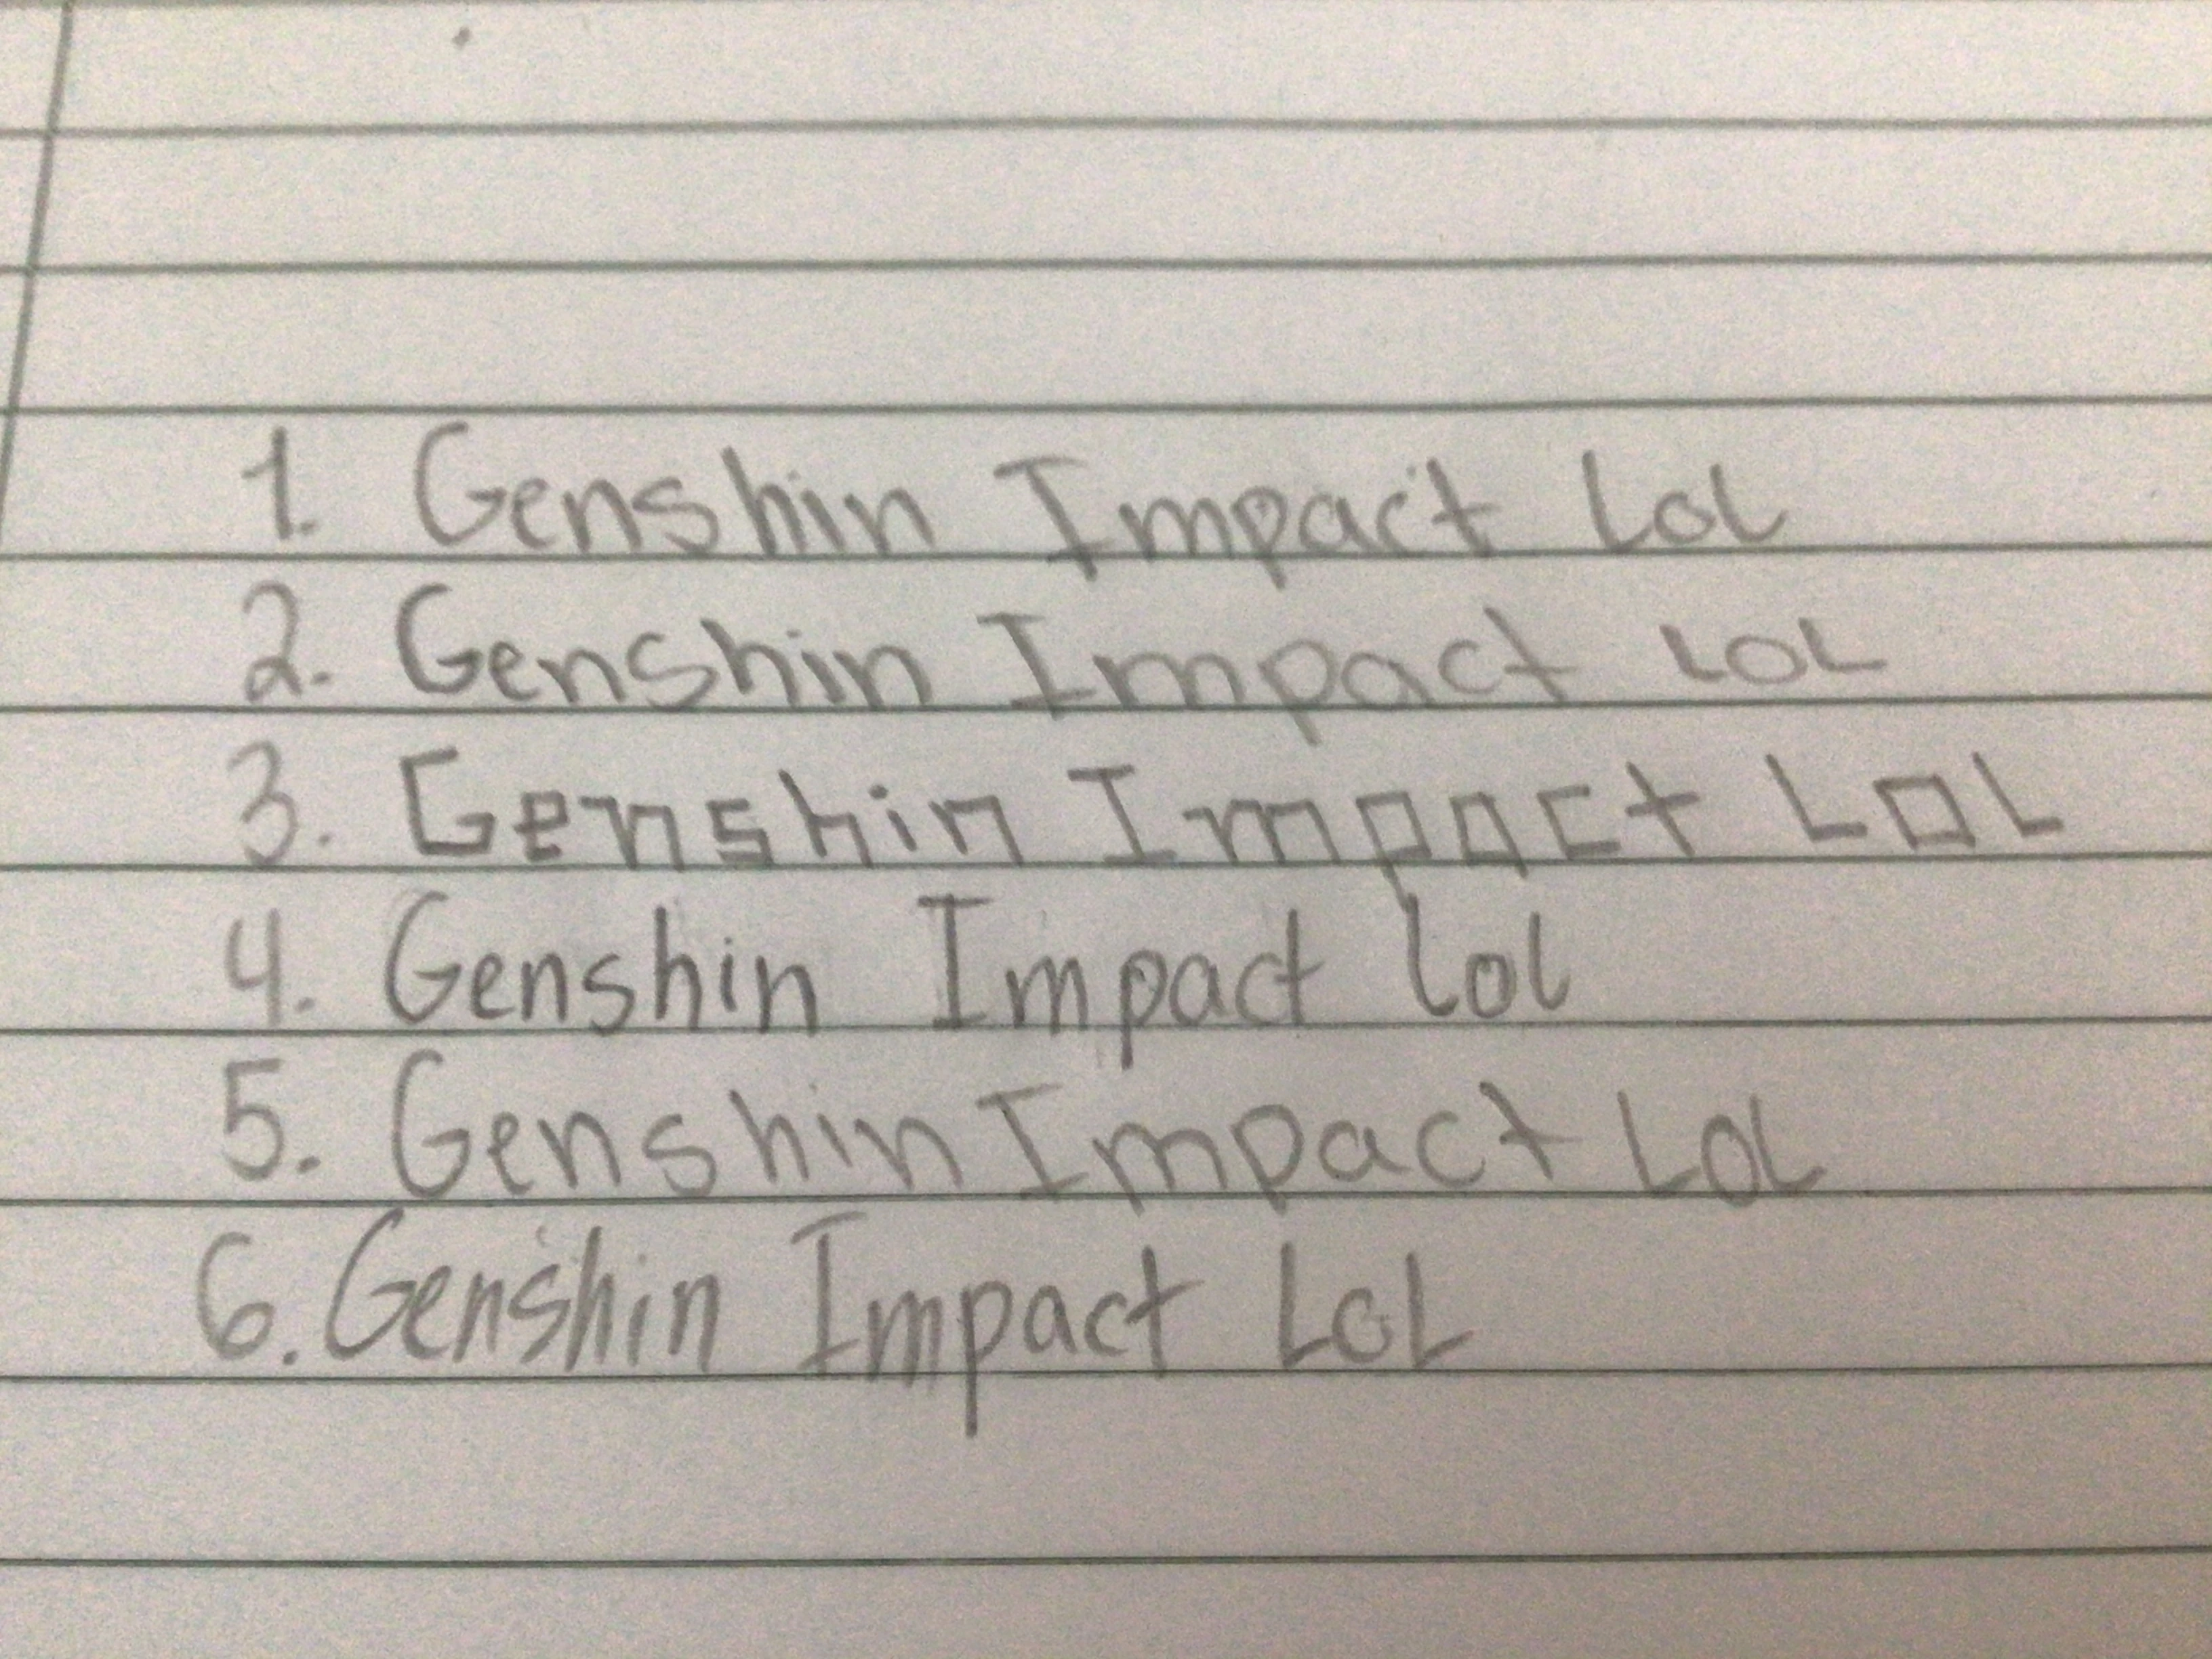 1. Genshin Impact LoL
2. Genshin Impact LOL
3. Genshin Impact LOL
4. Genshin Impact lol
5. Genshin Impact LoL
6. Genshin Impact LoL